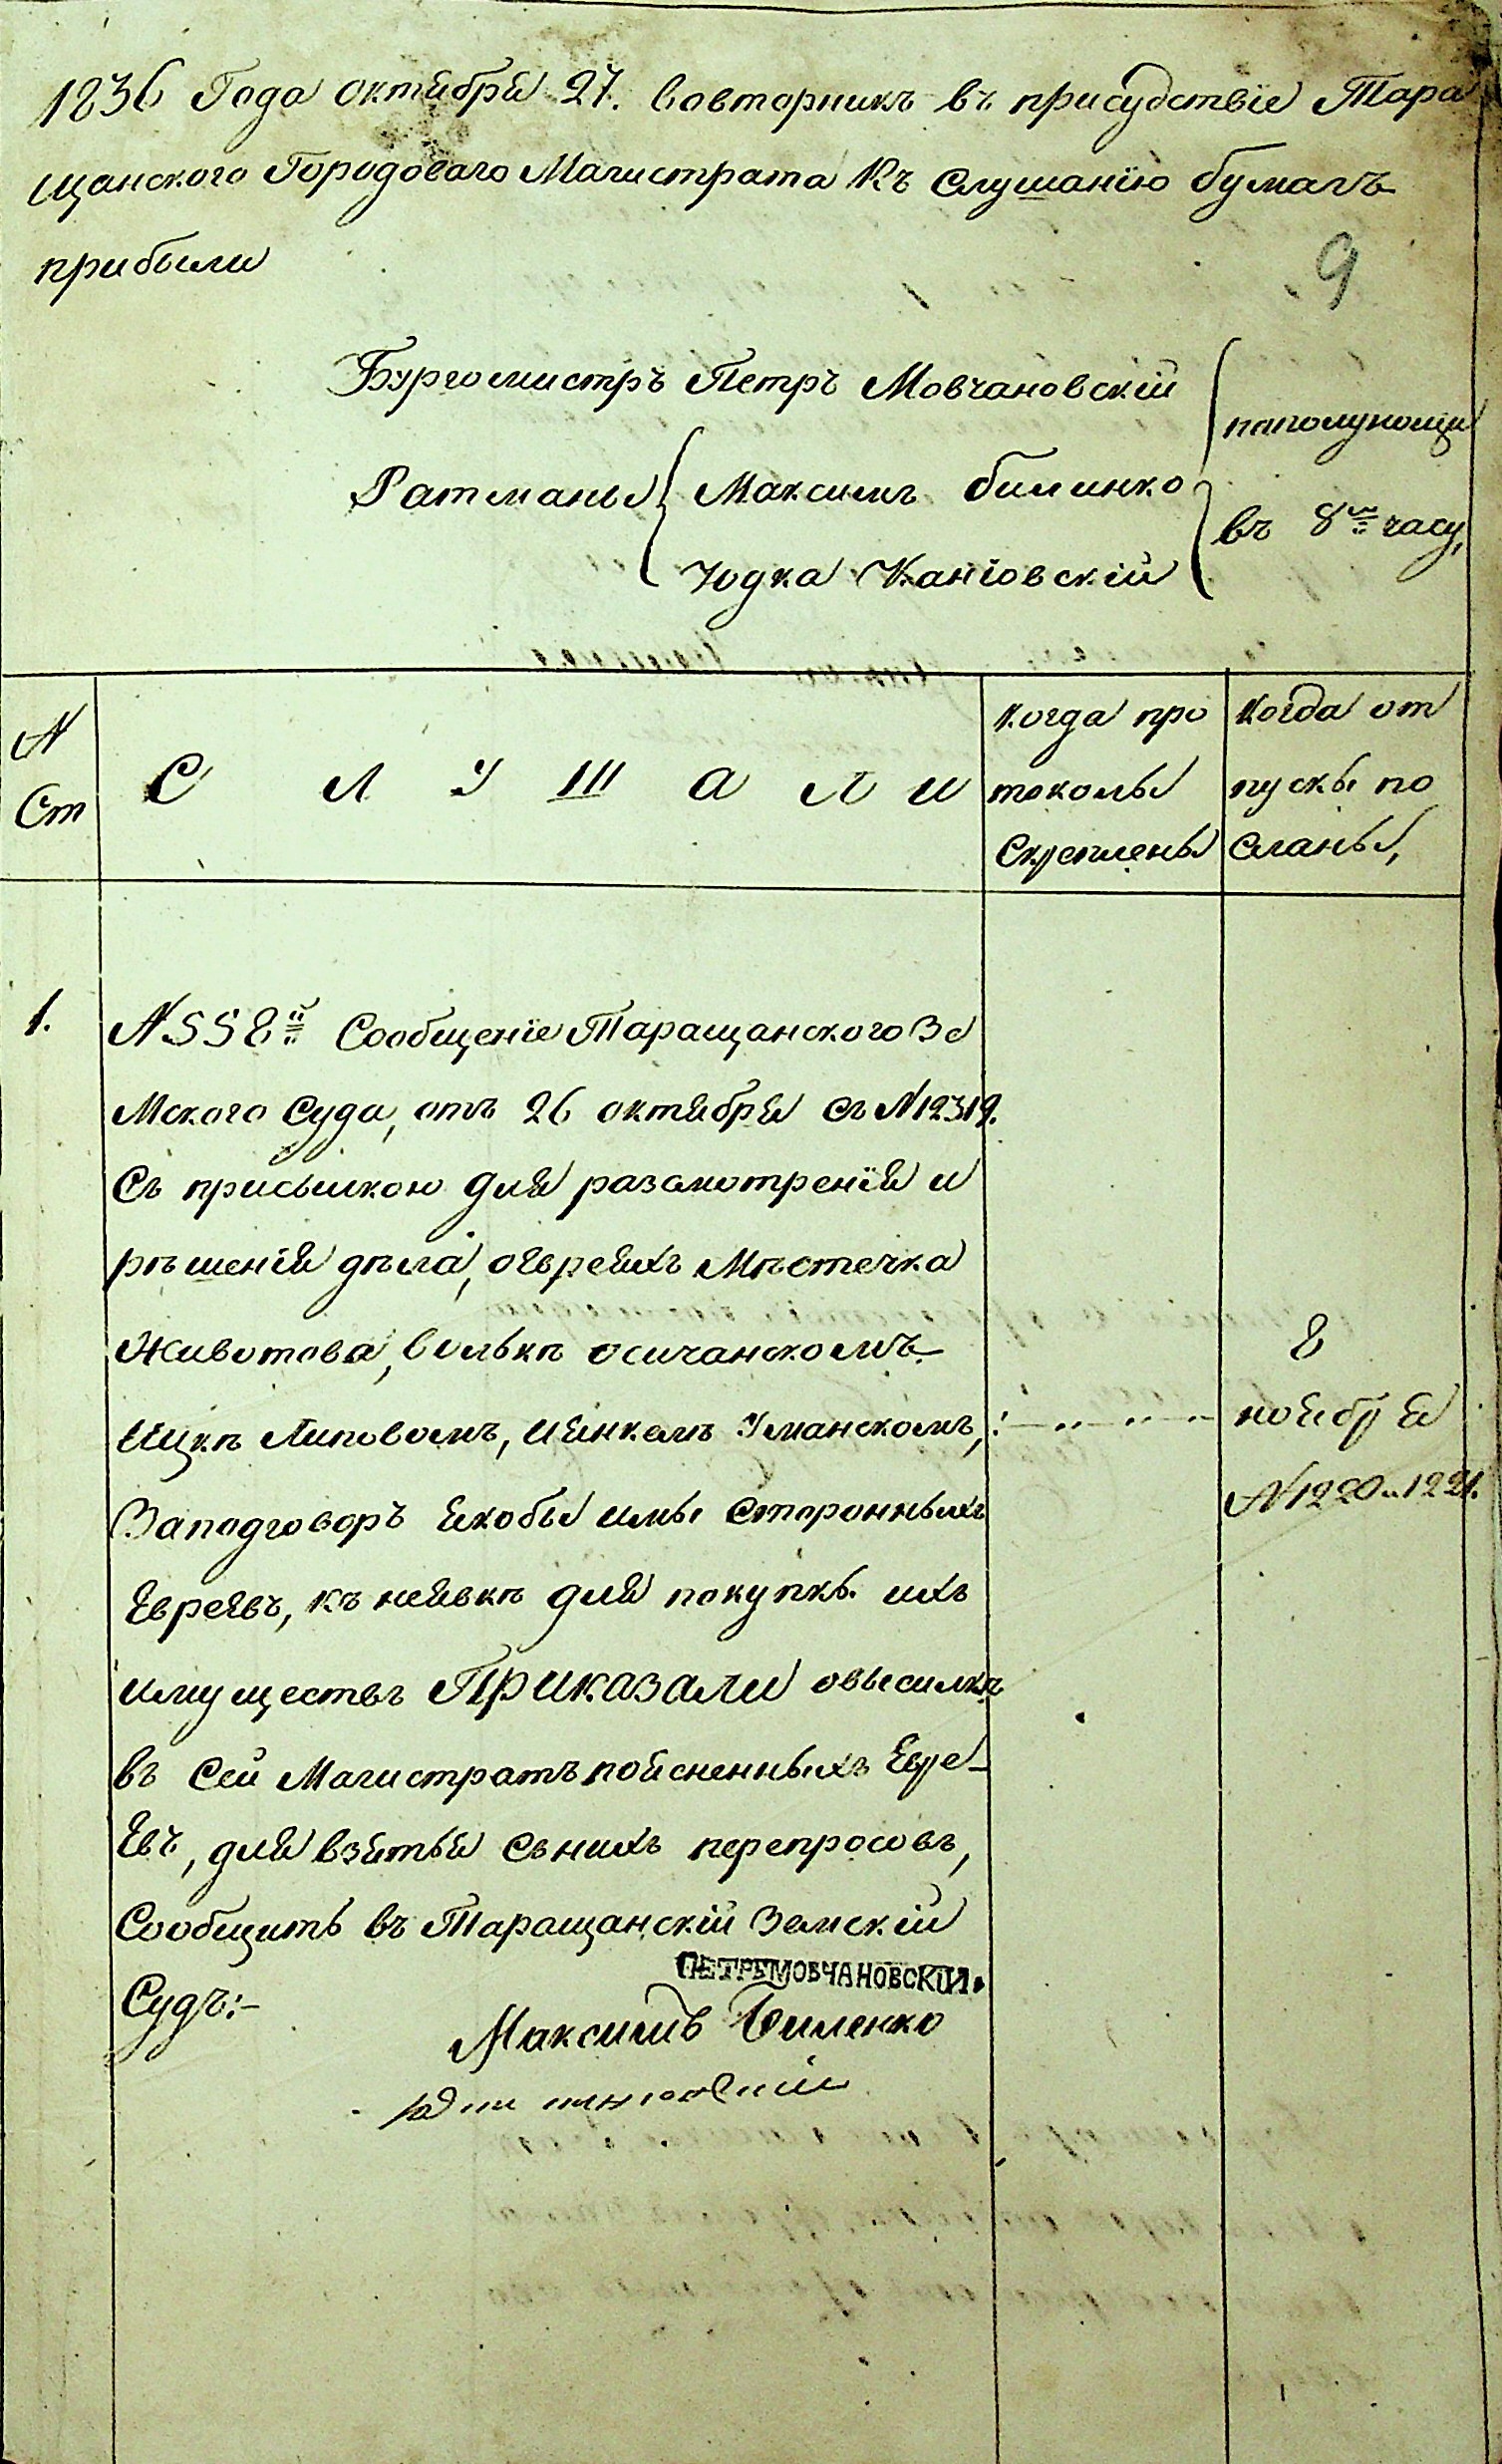 1836 Года октября 27. вовторникъ въ присудствіе Тара
щанского Городоваго Магистрата къ слушанію бумагъ
прибыли
9
Бургомистръ Петръ Мовчановскій
Ратманы { Максимъ билинко
Юдка Каніовскій
пополуночи
въ 8м часу,
N
Ст
С Л У Ш А Л И
когда про
токолы
скреплены
когда от
пускы по
сланы,
1.
N 558й Сообщеніе Таращанского Зе
мского Суда, отъ 26 октября съ N 12319.
Съ присылкою для разсмотренія и
рѣшенія дѣла, оевреяхъ Мѣстечка
Животова, волькѣ осичанскомъ
Ицкѣ Липовомъ, иянкелѣ Уманскомъ,
Заподговоръ якобы имы сторонныхъ
Евреявъ, къ неявкѣ для покупкы ихъ
имуществъ Приказали овысилкѣ
въ сей Магистратъ поясненныхъ Евре-
явъ, для взятья сънихъ перепросовъ,
Сообщить въ Таращанскій Земскій
Судъ:-
8
ноября
N 1220 и 1221.
ПЕТРЪ МОВЧАНОВСКІЙ.
Максимъ Биленко